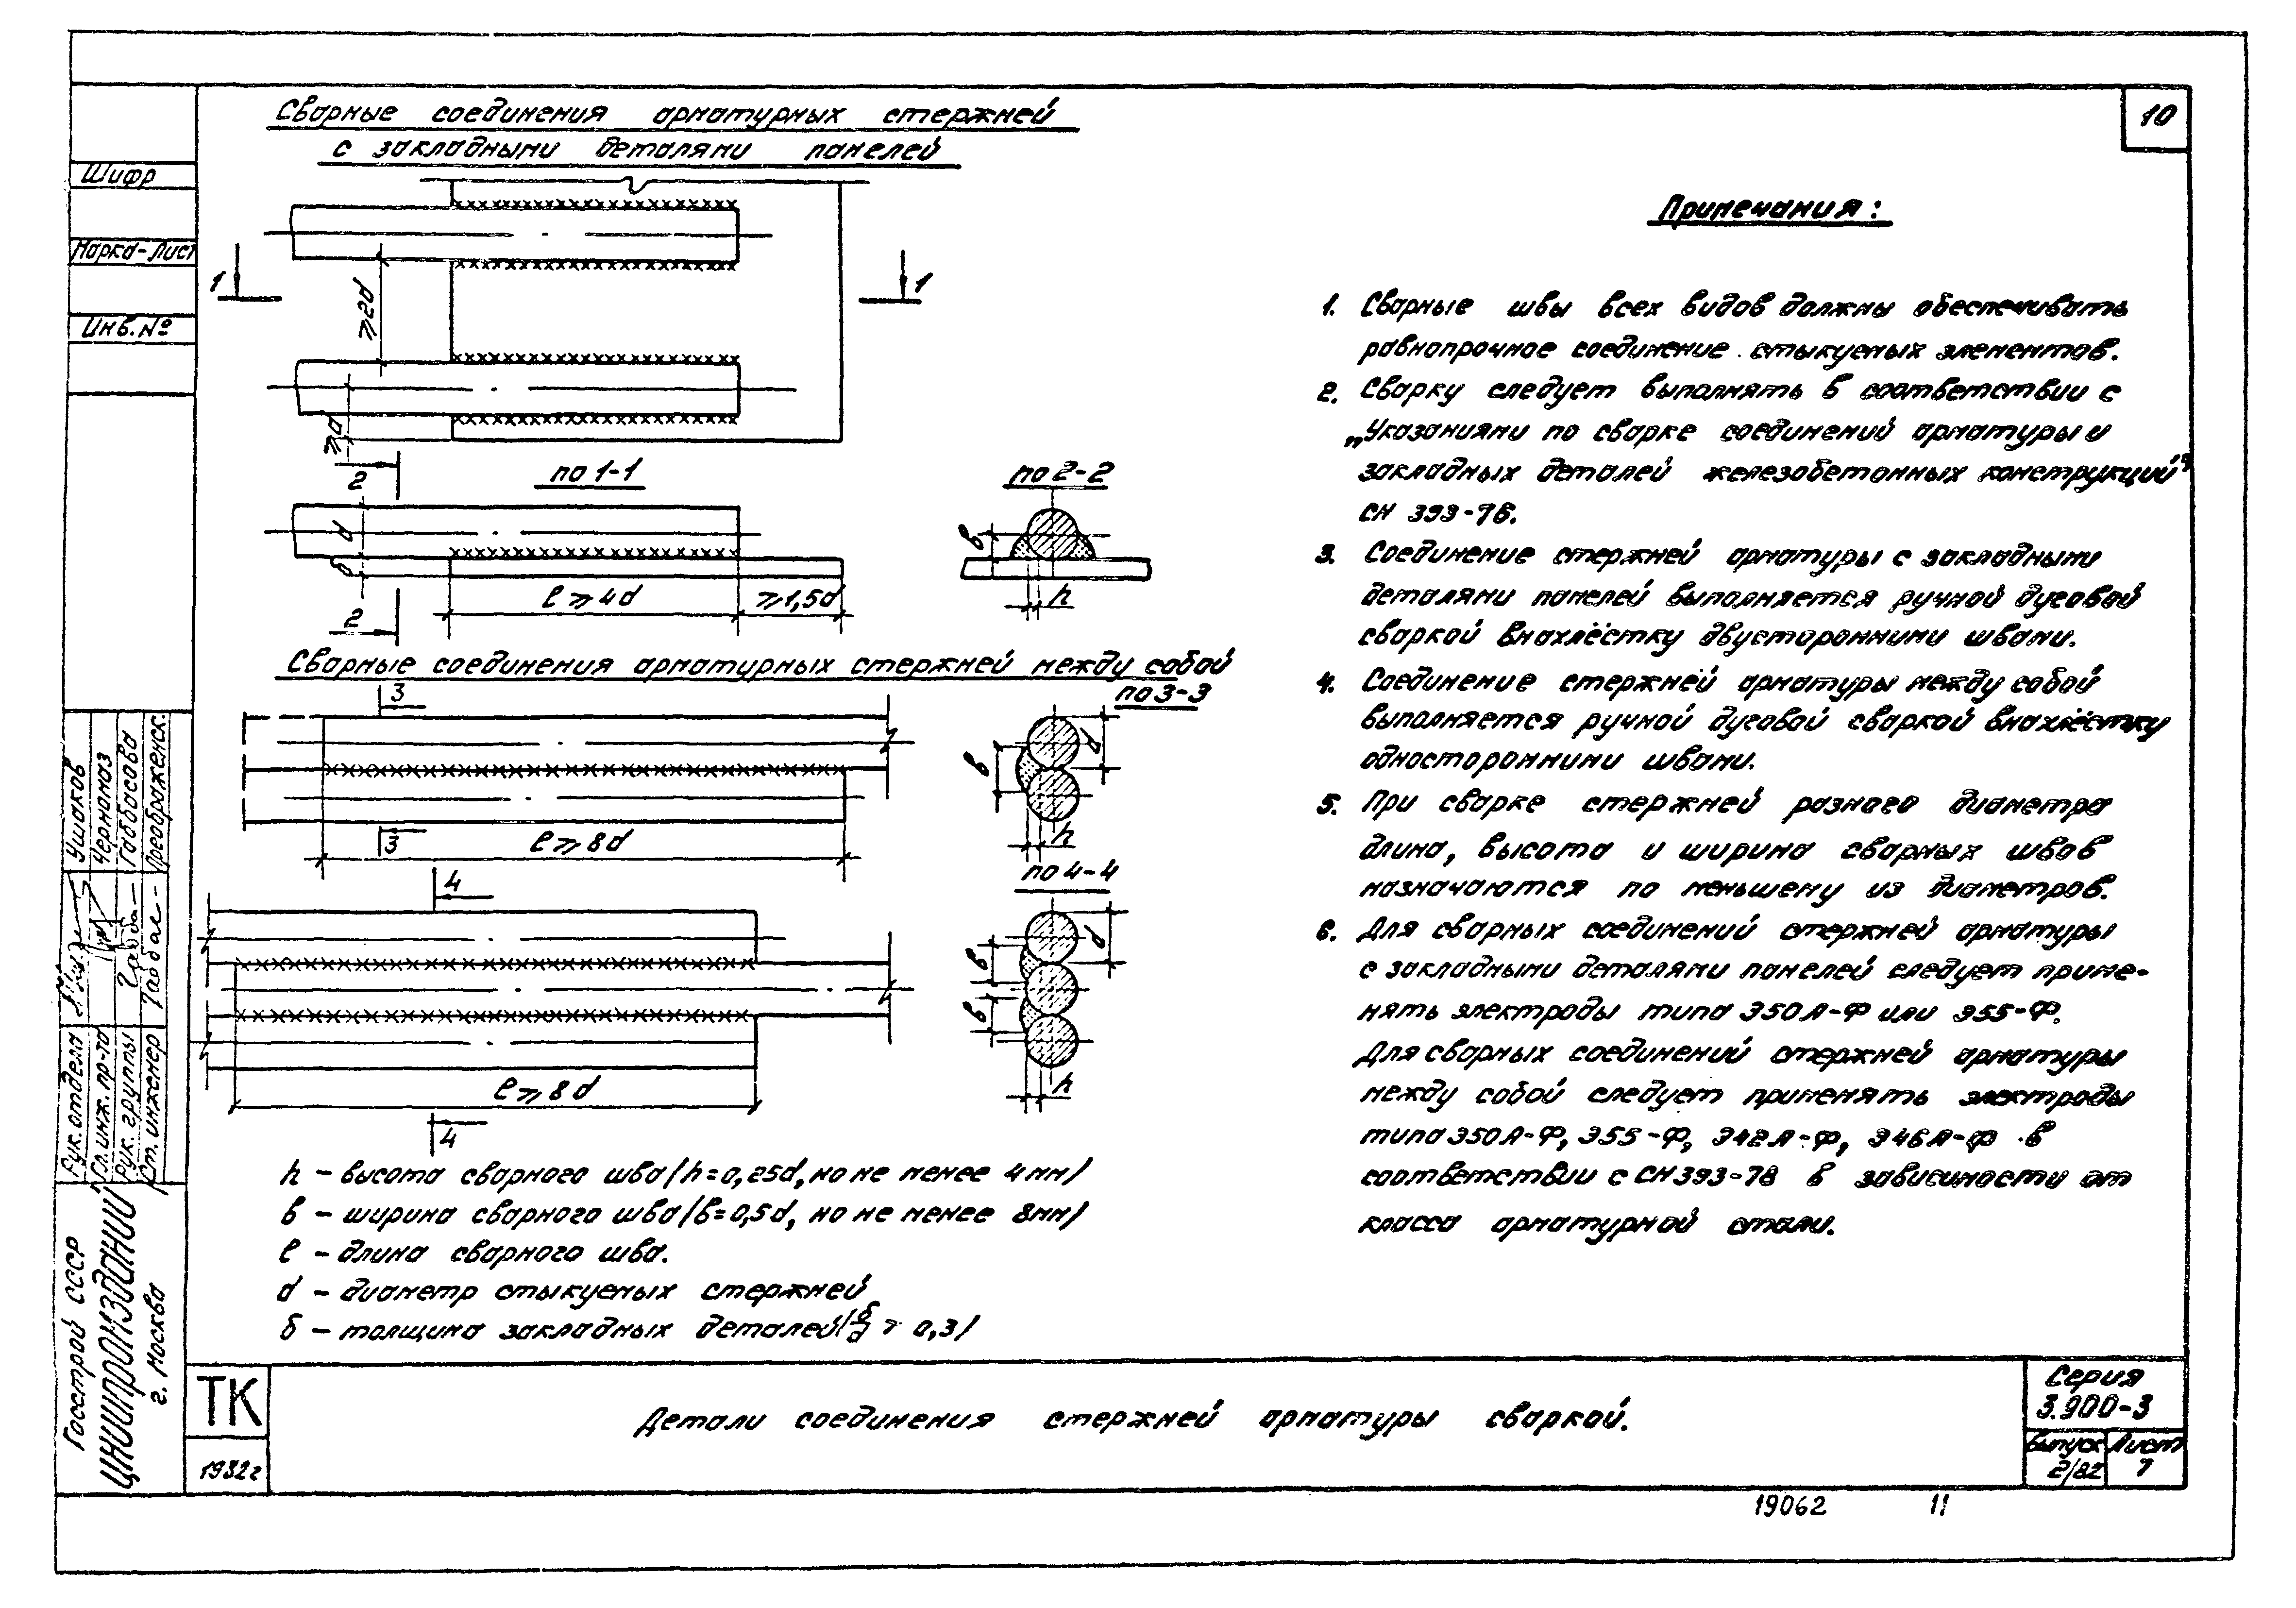 10
Сварные соединения арматурных стержней
с закладными деталями панелей
1
1
⩾2d
⩾d
2
по 1-1
по 2-2
d
δ
в
h
ℓ ⩾ 4d
⩾1,5d
2
Сварные соединения арматурных стержней между собой
по 3-3
3
d
в
h
3
ℓ ⩾ 8d
по 4-4
4
d
в
в
h
ℓ ⩾ 8d
4
h – высота сварного шва (h=0,25d, но не менее 4мм)
в – ширина сварного шва (в=0,5d, но не менее 8мм)
ℓ – длина сварного шва.
d – диаметр стыкуемых стержней
δ – толщина закладных деталей (δ/d ⩾ 0,3)
Примечания:
1. Сварные швы всех видов должны обеспечивать
равнопрочное соединение стыкуемых элементов.
2. Сварку следует выполнять в соответствии с
„Указаниями по сварке соединений арматуры и
закладных деталей железобетонных конструкций"
СН 393-78.
3. Соединение стержней арматуры с закладными
деталями панелей выполняется ручной дуговой
сваркой внахлёстку двусторонними швами.
4. Соединение стержней арматуры между собой
выполняется ручной дуговой сваркой внахлёстку
односторонними швами.
5. При сварке стержней разного диаметра
длина, высота и ширина сварных швов
назначаются по меньшему из диаметров.
6. Для сварных соединений стержней арматуры
с закладными деталями панелей следует приме-
нять электроды типа Э50А-Ф или Э55-Ф.
Для сварных соединений стержней арматуры
между собой следует применять электроды
типа Э50А-Ф, Э55-Ф, Э42А-Ф, Э46А-Ф в
соответствии с СН 393-78 в зависимости от
класса арматурной стали.
Шифр
Марка-Лист
Инв.№
Рук. отдела Ушаков
Гл. инж. пр-та Черномаз
Рук. группы Габбасова
Ст. инженер Преображенск.
Госстрой СССР
ЦНИИПРОМЗДАНИЙ
г. Москва
ТК
1982г
Детали соединения стержней арматуры сваркой.
Серия
3.900-3
Выпуск Лист
2/82 7
19062 11